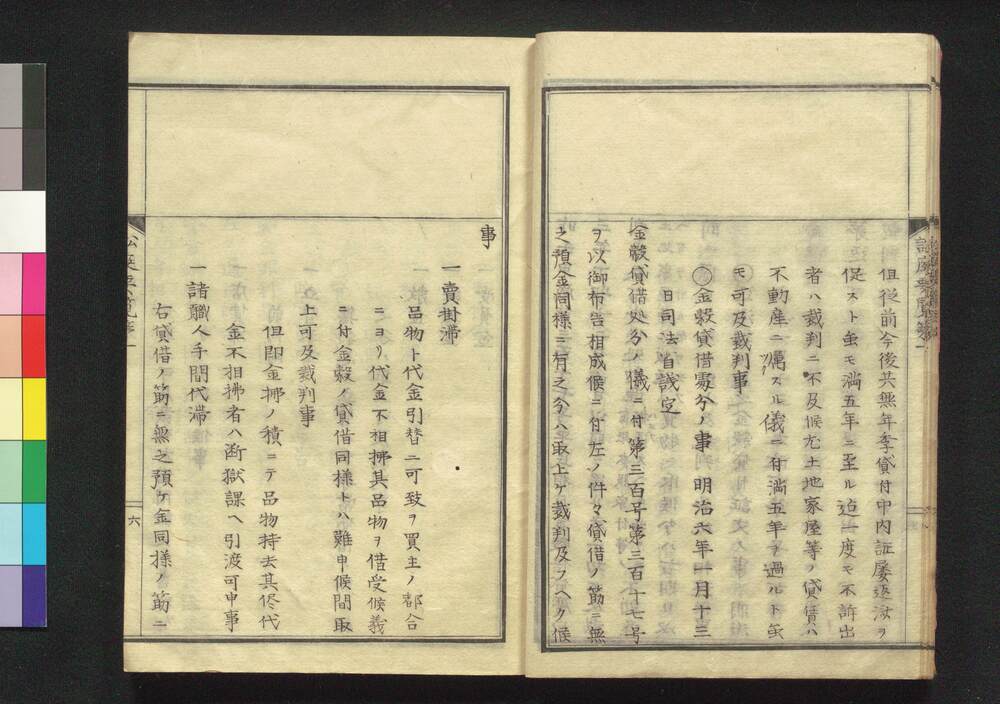 但従前今後共無年季貸付中内証屡返汝ヲ
促ストモ雖モ満五年ニ至ル迠一度モ不訴出
者ハ裁判ニ不及候尤土地家屋等ノ貸賃ハ
不動産ニ属スル儀ニ付満五年ヲ過ルト雖
モ可及裁判事
○金穀貸借処分ノ事明治六年一月十三
日司法省誠定
金穀貸借処分ノ儀ニ付第三百号第三百十七号
ヲ以御布告相成候ニ付左ノ件々貸借ノ筋ニ無
之預金同様ニ有之分ハ取上ケ裁判及フヘク候
事
一賣掛滞
品物ト代金引替ニ可致ヲ買主ノ都合
ニヨリ代金不相拂其品物ヲ借受候義
ニ付金穀ノ貸借同様トハ難申候間取
上可及裁判事
但即金拂ノ積ニテ品物持去其侭代
金不相拂者ハ断獄課ヘ引渡可申事
一諸職人手間代滞
右貸借ノ筋ニ無之預ケ金同様ノ筋ニ
六